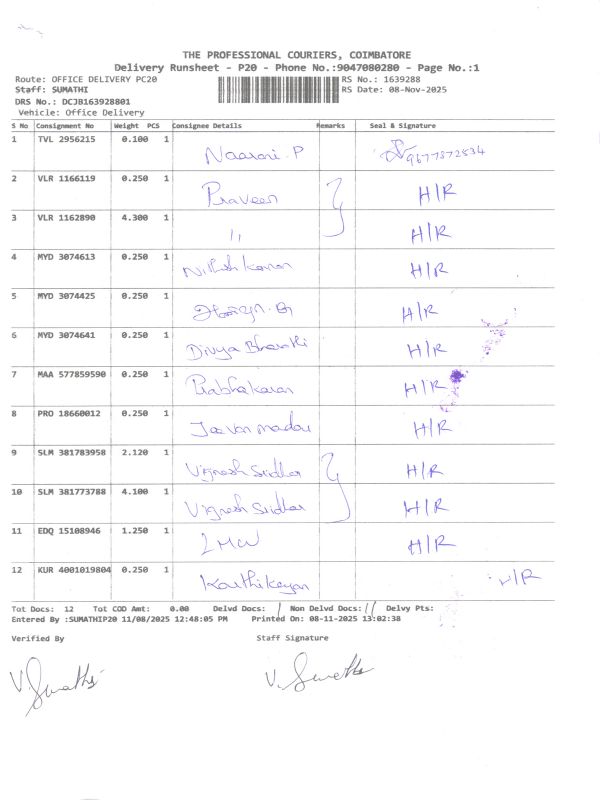 THE PROFESSIONAL COURIERS, COIMBATORE
Delivery Runsheet - P20 - Phone No.:9047080280 - Page No.:1
Route: OFFICE DELIVERY PC20 RS No.: 1639288
Staff: SUMATHI RS Date: 08-Nov-2025
DRS No.: DCJB163928801
Vehicle: Office Delivery
S No Consignment No Weight PCS Consignee Details Remarks Seal & Signature
1 TVL 2956215 0.100 1 Naarani.P
2 VLR 1166119 0.250 1 Praveen H/R
3 VLR 1162890 4.300 1 " H/R
4 MYD 3074613 0.250 1 H/R
5 MYD 3074425 0.250 1 H/R
6 MYD 3074641 0.250 1 Divya Bharathi H/R
7 MAA 577859590 0.250 1 Prabhakaran H/R
8 PRO 18660012 0.250 1 H/R
9 SLM 381783958 2.120 1 Vignesh Sridhar H/R
10 SLM 381773788 4.100 1 Vignesh Sridhar H/R
11 EDQ 15108946 1.250 1 LMW H/R
12 KUR 4001019804 0.250 1 Karthikeyan H/R
Tot Docs: 12 Tot COD Amt: 0.00 Delvd Docs: 1 Non Delvd Docs: 11 Delvy Pts:
Entered By :SUMATHIP20 11/08/2025 12:48:05 PM Printed On: 08-11-2025 13:02:38
Verified By Staff Signature
V. Sumathi V. Sumathi